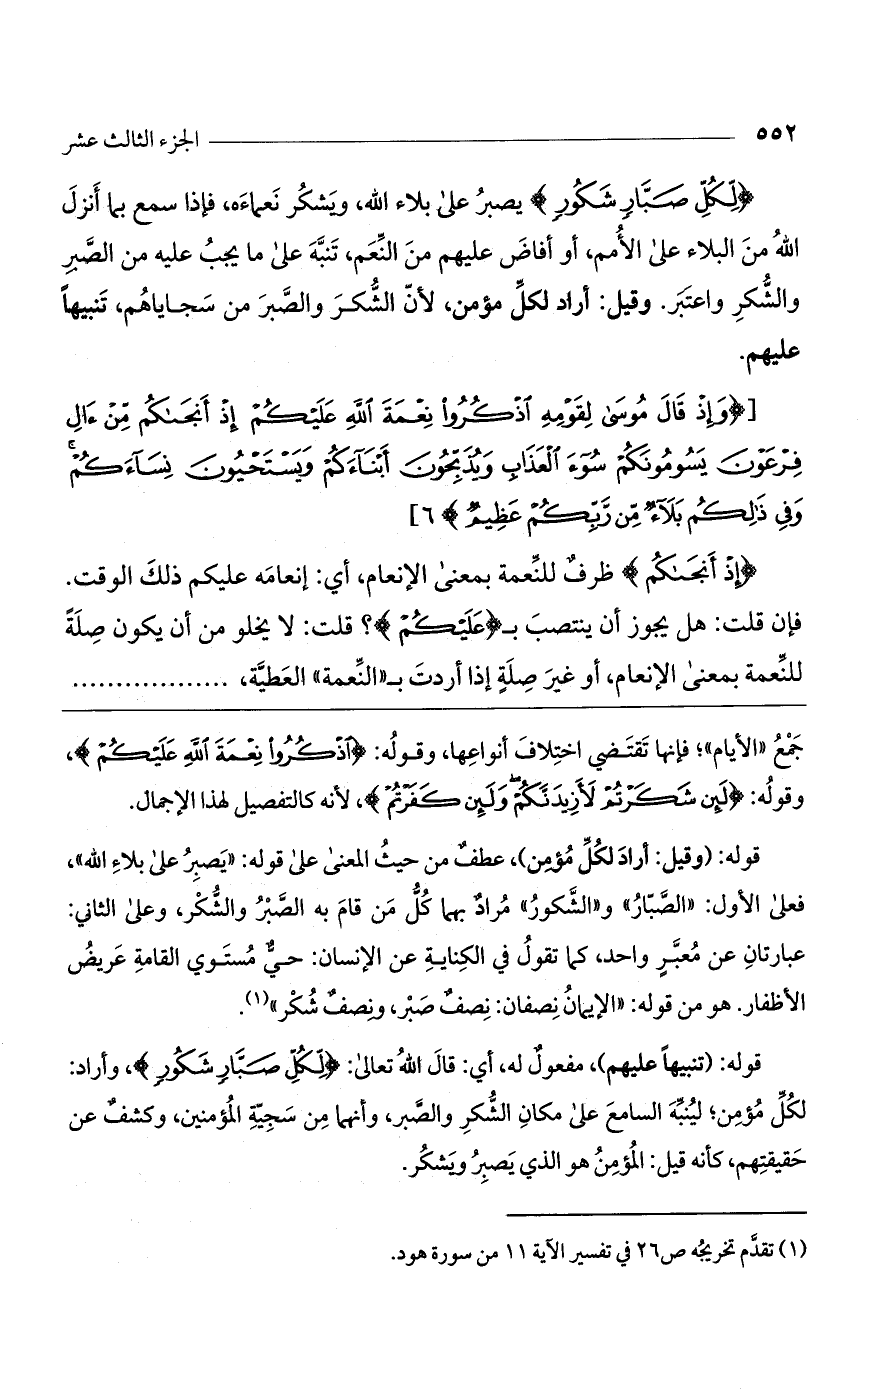 ٥٥٢ الجزء الثالث عشر
﴿لِّكُلِّ صَبَّارٍ شَكُورٍ﴾ يصبرُ علىٰ بلاء الله، ويَشكُر نَعماءَه، فإذا سمع بما أَنزلَ
اللهُ منَ البلاء علىٰ الأُمم، أو أفاضَ عليهم منَ النِّعَم، تَنبَّهَ علىٰ ما يجبُ عليه من الصَّبرِ
والشُّكرِ واعتبَر. وقيل: أراد لكلِّ مؤمن، لأنّ الشُّكرَ والصَّبرَ من سَجاياهُم، تَنبيهاً
عليهم.
[﴿وَإِذْ قَالَ مُوسَىٰ لِقَوْمِهِ ٱذْكُرُوا۟ نِعْمَةَ ٱللَّهِ عَلَيْكُمْ إِذْ أَنجَىٰكُم مِّنْ ءَالِ
فِرْعَوْنَ يَسُومُونَكُمْ سُوٓءَ ٱلْعَذَابِ وَيُذَبِّحُونَ أَبْنَآءَكُمْ وَيَسْتَحْيُونَ نِسَآءَكُمْ ۚ
وَفِى ذَٰلِكُم بَلَآءٌ مِّن رَّبِّكُمْ عَظِيمٌ﴾ ٦]
﴿إِذْ أَنجَىٰكُم﴾ ظرفٌ للنِّعمة بمعنىٰ الإنعام، أي: إنعامَه عليكم ذلكَ الوقت.
فإن قلت: هل يجوز أن ينتصبَ بـ﴿عَلَيْكُمْ﴾؟ قلت: لا يخلو من أن يكون صِلَةً
للنِّعمة بمعنىٰ الإنعام، أو غيرَ صِلَةٍ إذا أردتَ بـ«النِّعمة» العَطيَّة، ..................
جَمْعُ «الأيام»؛ فإنها تَقتَضي اختِلافَ أنواعِها، وقولُه: ﴿ٱذْكُرُوا۟ نِعْمَةَ ٱللَّهِ عَلَيْكُمْ﴾،
وقولُه: ﴿لَئِن شَكَرْتُمْ لَأَزِيدَنَّكُمْ ۖ وَلَئِن كَفَرْتُمْ﴾، لأنه كالتفصيل لهذا الإجمال.
قوله: (وقيل: أرادَ لكُلِّ مُؤمِن)، عطفٌ من حيثُ المعنىٰ علىٰ قوله: «يَصبِرُ علىٰ بلاءِ الله»،
فعلىٰ الأول: «الصَّبّارُ» و«الشَّكورُ» مُرادٌ بهما كُلُّ مَن قامَ به الصَّبْرُ والشُّكْر، وعلىٰ الثاني:
عبارتانِ عن مُعبَّرٍ واحد، كما تقولُ في الكِنايةِ عن الإنسان: حيٌّ مُستَوي القامةِ عَريضُ
الأظفار. هو من قوله: «الإيمانُ نِصفان: نِصفٌ صَبْر، ونِصفٌ شُكْر»(١).
قوله: (تنبيهاً عليهم)، مفعولٌ له، أي: قالَ اللهُ تعالىٰ: ﴿لِّكُلِّ صَبَّارٍ شَكُورٍ﴾، وأراد:
لكُلِّ مُؤمِن؛ ليُنبِّهَ السامعَ علىٰ مكانِ الشُّكرِ والصَّبر، وأنهما مِن سَجِيّةِ المُؤمنين، وكشفٌ عن
حَقيقتِهم، كأنه قيل: المُؤمِنُ هو الذي يَصبِرُ ويَشكُر.
(١) تقدَّم تخريجُه ص٢٦ في تفسير الآية ١١ من سورة هود.